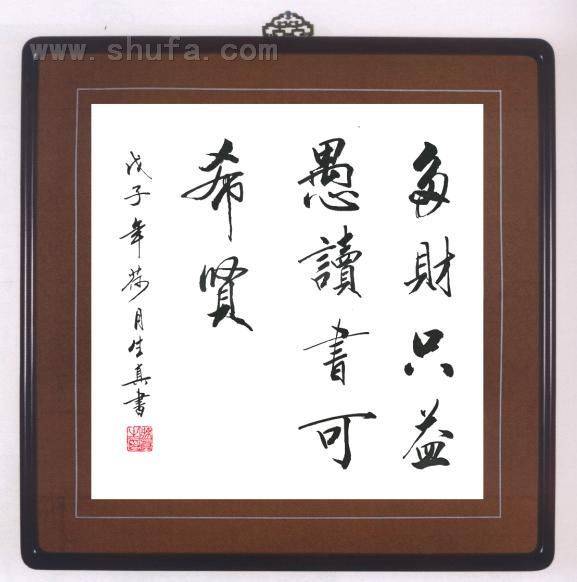 www.shufa.com
多財只益
愚讀書可
希賢
戊子年荷月生真書